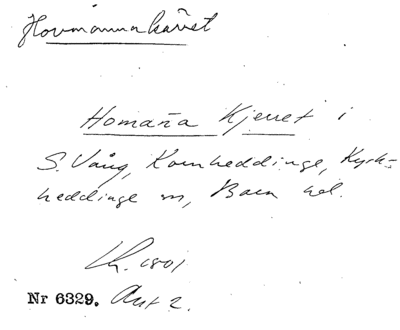 Hovmannakärret
Homaña Kjerret i
S. Vång, Kornheddinge, Kyrk-
heddinge sn, Bara hd.
Lk. 1801
Nr 6329. Akt 2.